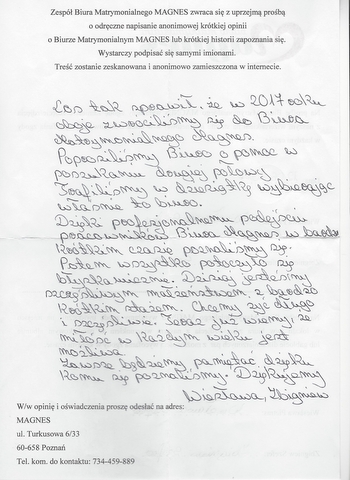 Zespół Biura Matrymonialnego MAGNES zwraca się z uprzejmą prośbą
o odręczne napisanie anonimowej krótkiej opinii
o Biurze Matrymonialnym MAGNES lub krótkiej historii zapoznania się.
Wystarczy podpisać się samymi imionami.
Treść zostanie zeskanowana i anonimowo zamieszczona w internecie.
Los tak sprawił, że w 2017 roku
oboje zwróciliśmy się do Biura
Matrymonialnego Magnes.
Poprosiliśmy Biuro o pomoc w
poszukaniu drugiej połowy
Trafiliśmy w dziesiątkę wybierając
właśnie to biuro.
Dzięki profesjonalnemu podejściu
pracowników Biura Magnes w bardzo
krótkim czasie poznaliśmy się.
Potem wszystko potoczyło się
błyskawicznie. Dzisiaj jesteśmy
szczęśliwym małżeństwem z bardzo
krótkim stażem. Chcemy żyć długo
i szczęśliwie. Teraz już wiemy, że
miłość w każdym wieku jest
możliwa
Zawsze będziemy pamiętać dzięki
komu się poznaliśmy. Dziękujemy
Wiesława, Zbigniew
W/w opinię i oświadczenia proszę odesłać na adres:
MAGNES
ul. Turkusowa 6/33
60-658 Poznań
Tel. kom. do kontaktu: 734-459-889